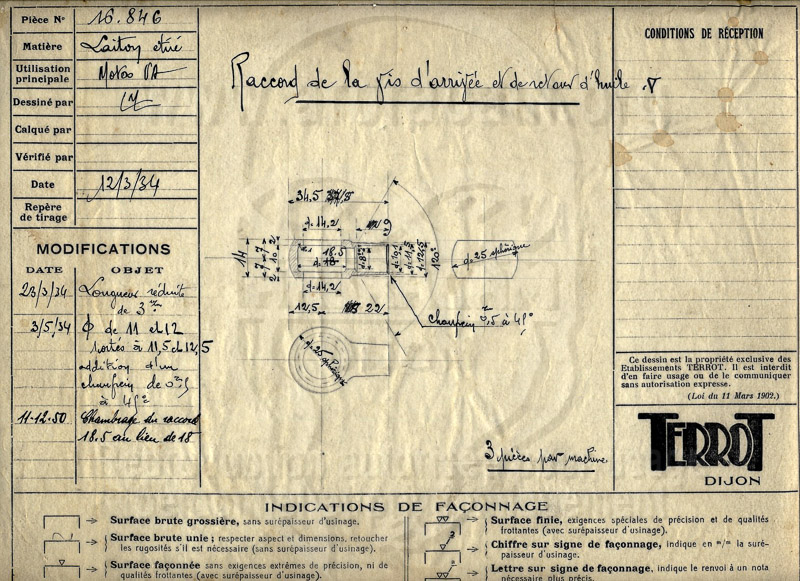 Pièce N° 16.846
Matière Laiton étiré
Utilisation principale Motos VA
Dessiné par
Calqué par
Vérifié par
Date 12/3/34
Repère de tirage
MODIFICATIONS
DATE OBJET
23/3/34 Longueur réduite
de 3 m/m
3/5/34 Φ de 11 et 12
portés à 11,5 et 12,5
addition d'un
chanfrein de 0m/m5
à 45°
11-12-50 Chambrage du raccord
18.5 au lieu de 18
Raccord de la vis d'arrivée et de retour d'huile
34.5
d=14,2
9
14
7 7
2 10 2
18.5
d=18
d=8
d=10,1
d=11,5
d=12,5
120°
d=25 sphérique
d=14,2
12,5 22
chanfrein 0m/m,5 à 45°
d=25 sphérique
3 pièces par machine
CONDITIONS DE RÉCEPTION
Ce dessin est la propriété exclusive des
Etablissements TERROT. Il est interdit
d'en faire usage ou de le communiquer
sans autorisation expresse.
(Loi du 11 Mars 1902.)
TERROT
DIJON
INDICATIONS DE FAÇONNAGE
Surface brute grossière, sans surépaisseur d'usinage.
Surface brute unie; respecter aspect et dimensions, retoucher
les rugosités s'il est nécessaire (sans surépaisseur d'usinage).
Surface façonnée sans exigences extrêmes de précision, ni de
qualités frottantes (avec surépaisseur d'usinage).
Surface finie, exigences spéciales de précision et de qualités
frottantes (avec surépaisseur d'usinage).
Chiffre sur signe de façonnage, indique en m/m la suré-
paisseur d'usinage.
Lettre sur signe de façonnage, indique le renvoi à un nota
nécessaire plus précis.